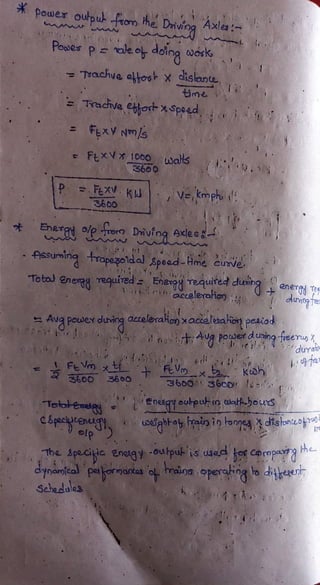 * Power output from the Driving Axles:-
Power P = rate of doing work
= Tractive effort x distance
time
= Tractive effort x speed
= Ft x V Nm/s
= Ft x V x 1000 watts
3600
P = Ft x V KW , V = kmph
3600
* Energy o/p from Driving Axles:-
Assuming trapezoidal speed-time curve.
Total Energy required = Energy required during + energy
acceleration during
= Avg power during acceleration x acceleration period
+ Avg power during freerun x
= 1 Ft Vm x t1 + Ft' Vm x t2 kwh
2 3600 3600 3600 3600
Total Energy = Energy output in watt-hours
(specific energy o/p) weight of train in tonnes x distance of
The specific Energy-output is used for comparing the
dynamical performances of trains operating to different
Schedules